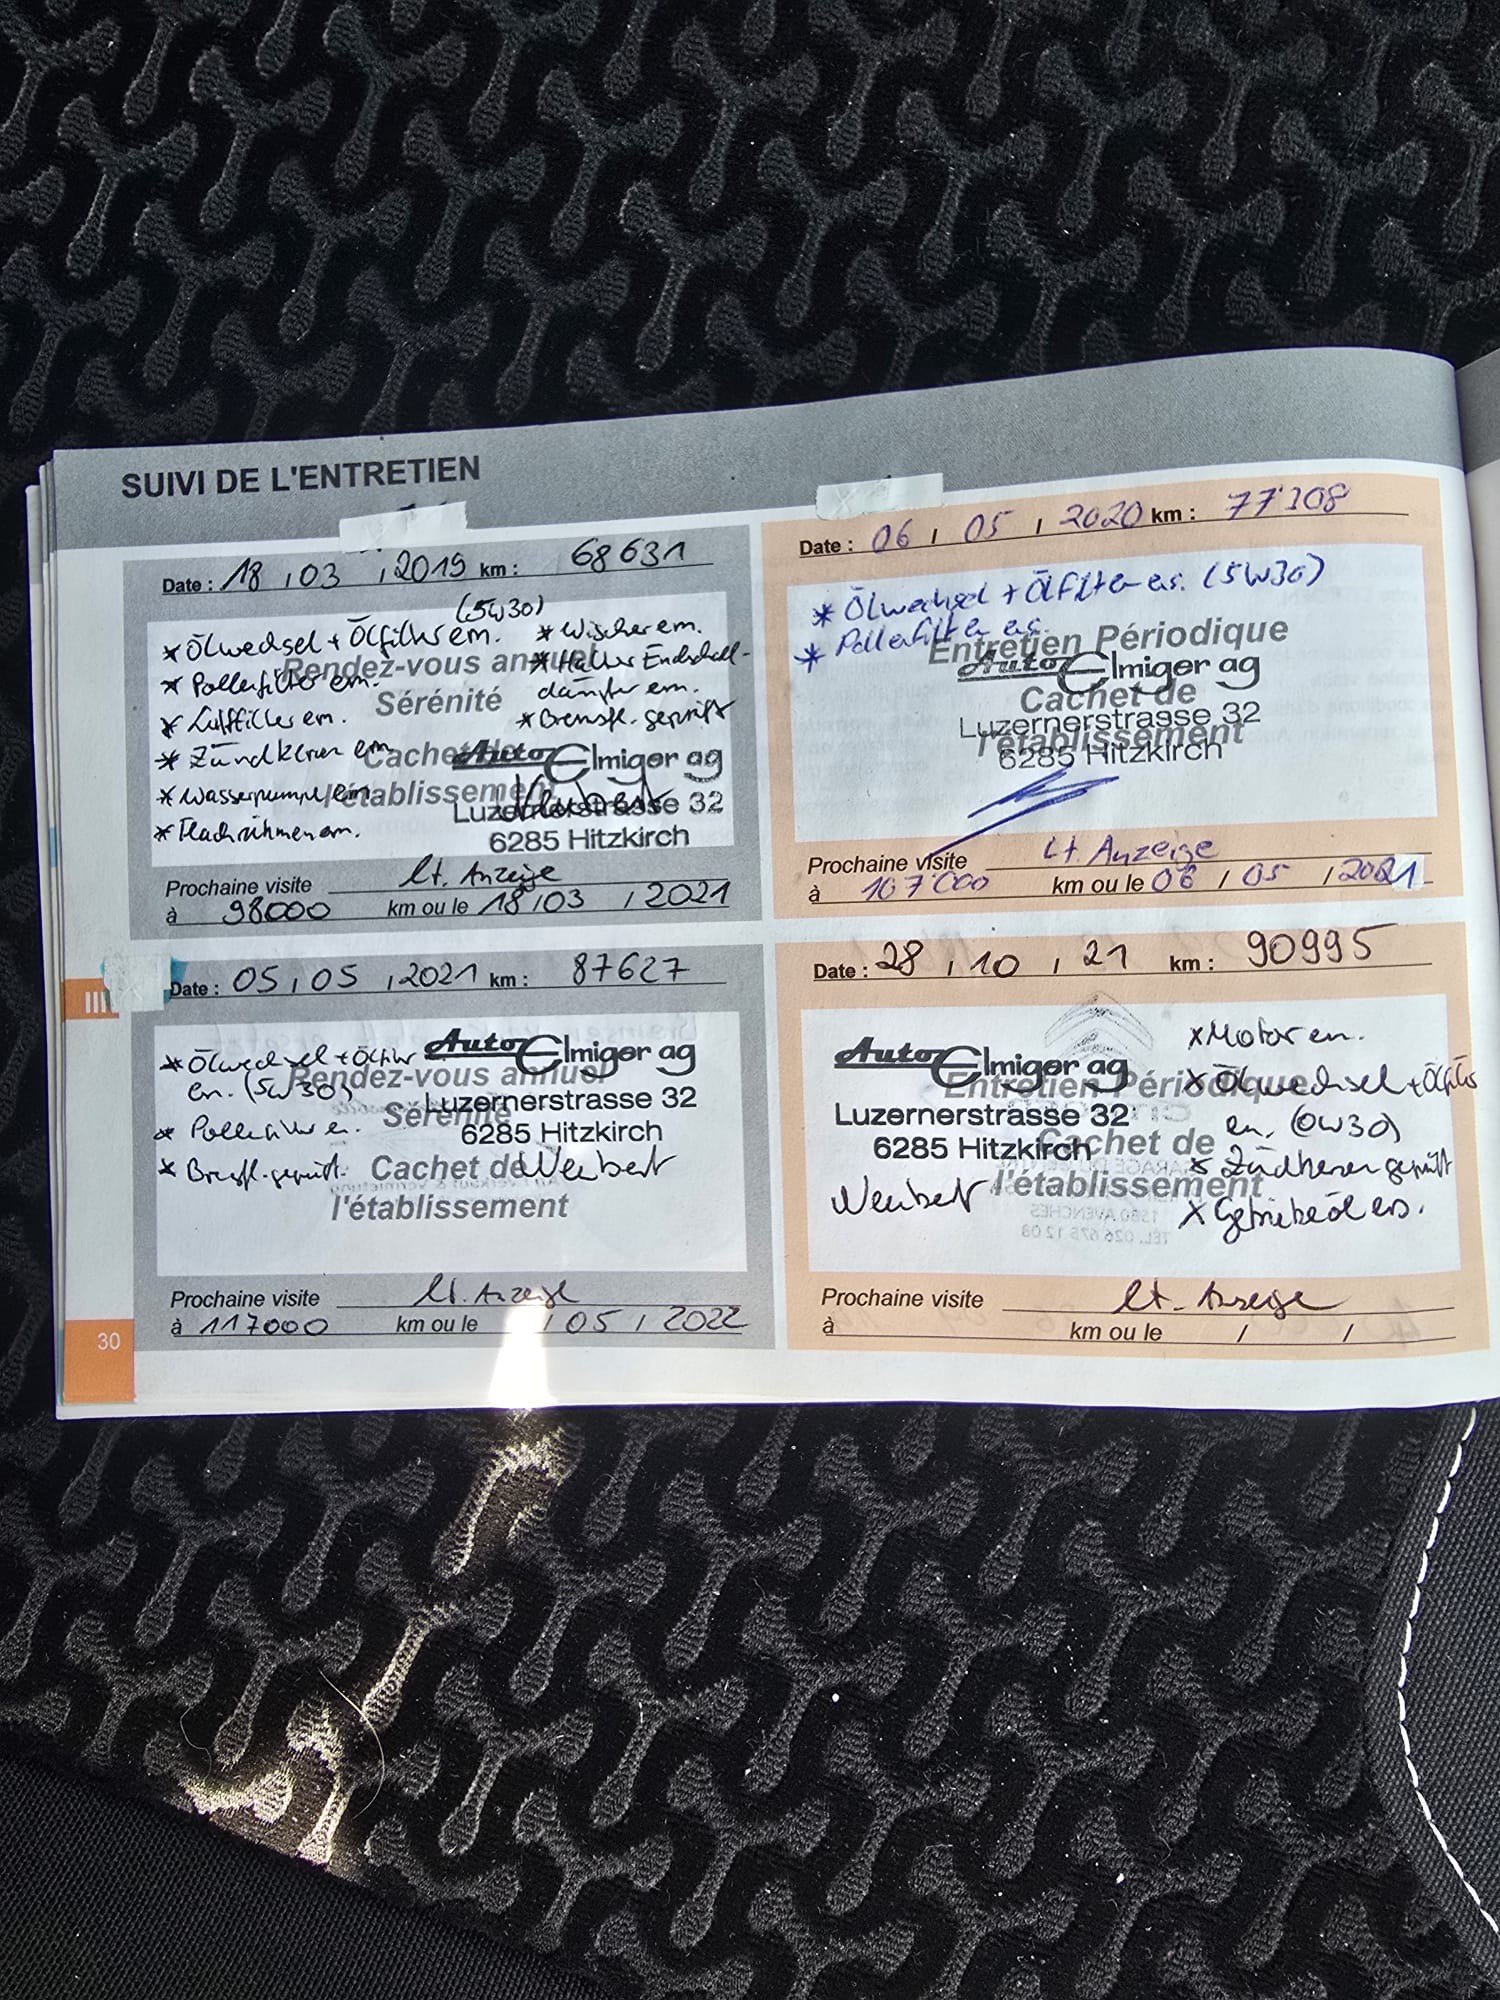 SUIVI DE L'ENTRETIEN
Date : 18 / 03 / 2019 km : 68631
(5W30)
* Ölwechsel + Ölfilter em.
* Pollenfilter em.
* Luftfilter em.
* Zündkerzen em.
* Wasserpumpe em.
* Flachriehmen em.
* Wischer em.
* Halter Endschall-
dämpfer em.
* Bremsfl. geprüft
Rendez-vous annuel
Sérénité
Cachet de
l'établissement
Auto Elmiger ag
Luzernerstrasse 32
6285 Hitzkirch
Prochaine visite lt. Anzeige
à 98000 km ou le 18 / 03 / 2021
Date : 06 / 05 / 2020 km : 77308
* Ölwechsel + Ölfilter ers. (5W30)
* Pollenfilter ers.
Entretien Périodique
Cachet de
l'établissement
Auto Elmiger ag
Luzernerstrasse 32
6285 Hitzkirch
Prochaine visite Lt. Anzeige
à 107000 km ou le 06 / 05 / 2021
Date : 05 / 05 / 2021 km : 87627
* Ölwechsel + Ölfilter
en. (5W30)
* Pollenfilter en.
* Bremsfl. geprüft.
Rendez-vous annuel
Sérénité
Cachet de
l'établissement
Auto Elmiger ag
Luzernerstrasse 32
6285 Hitzkirch
Prochaine visite lt. Anzeige
à 117000 km ou le / 05 / 2022
Date : 28 / 10 / 21 km : 90995
Auto Elmiger ag
Luzernerstrasse 32
6285 Hitzkirch
Entretien Périodique
Cachet de
l'établissement
x Motor en.
x Ölwechsel + Ölfilter
en. (0W30)
x Zündkerzen geprüft
x Getriebeöl ers.
Prochaine visite lt. Anzeige
à km ou le / /
III
30